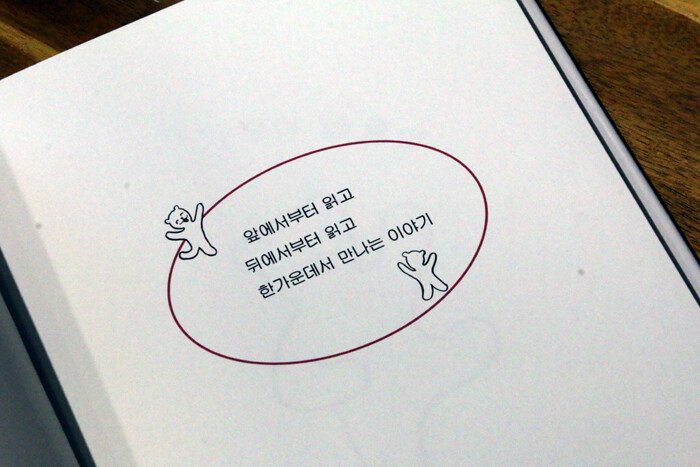 앞에서부터 읽고
뒤에서부터 읽고
한가운데서 만나는 이야기